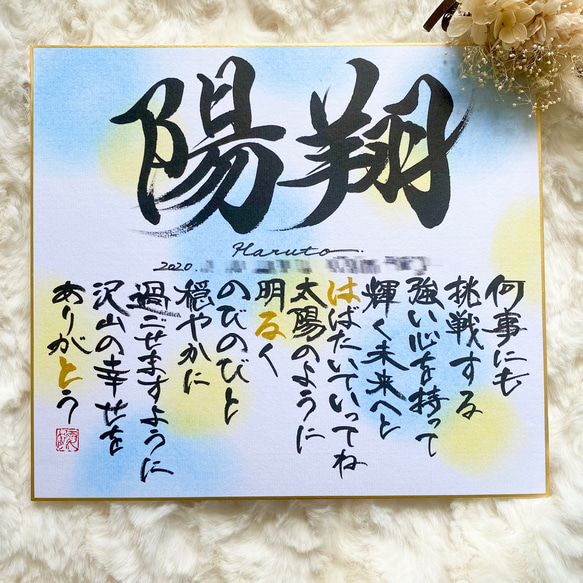 陽翔
Haruto
2020.
何事にも
挑戦する
強い心を持って
輝く未来へと
はばたいていってね
太陽のように
明るく
のびのびと
穏やかに
過ごせますように
沢山の幸せを
ありがとう